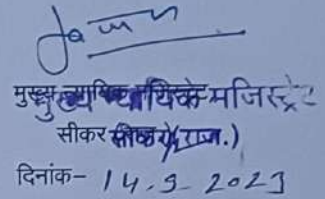 मुख्य न्यायिक मजिस्ट्रेट
सीकर (राज.)
दिनांक- 14.9.2023